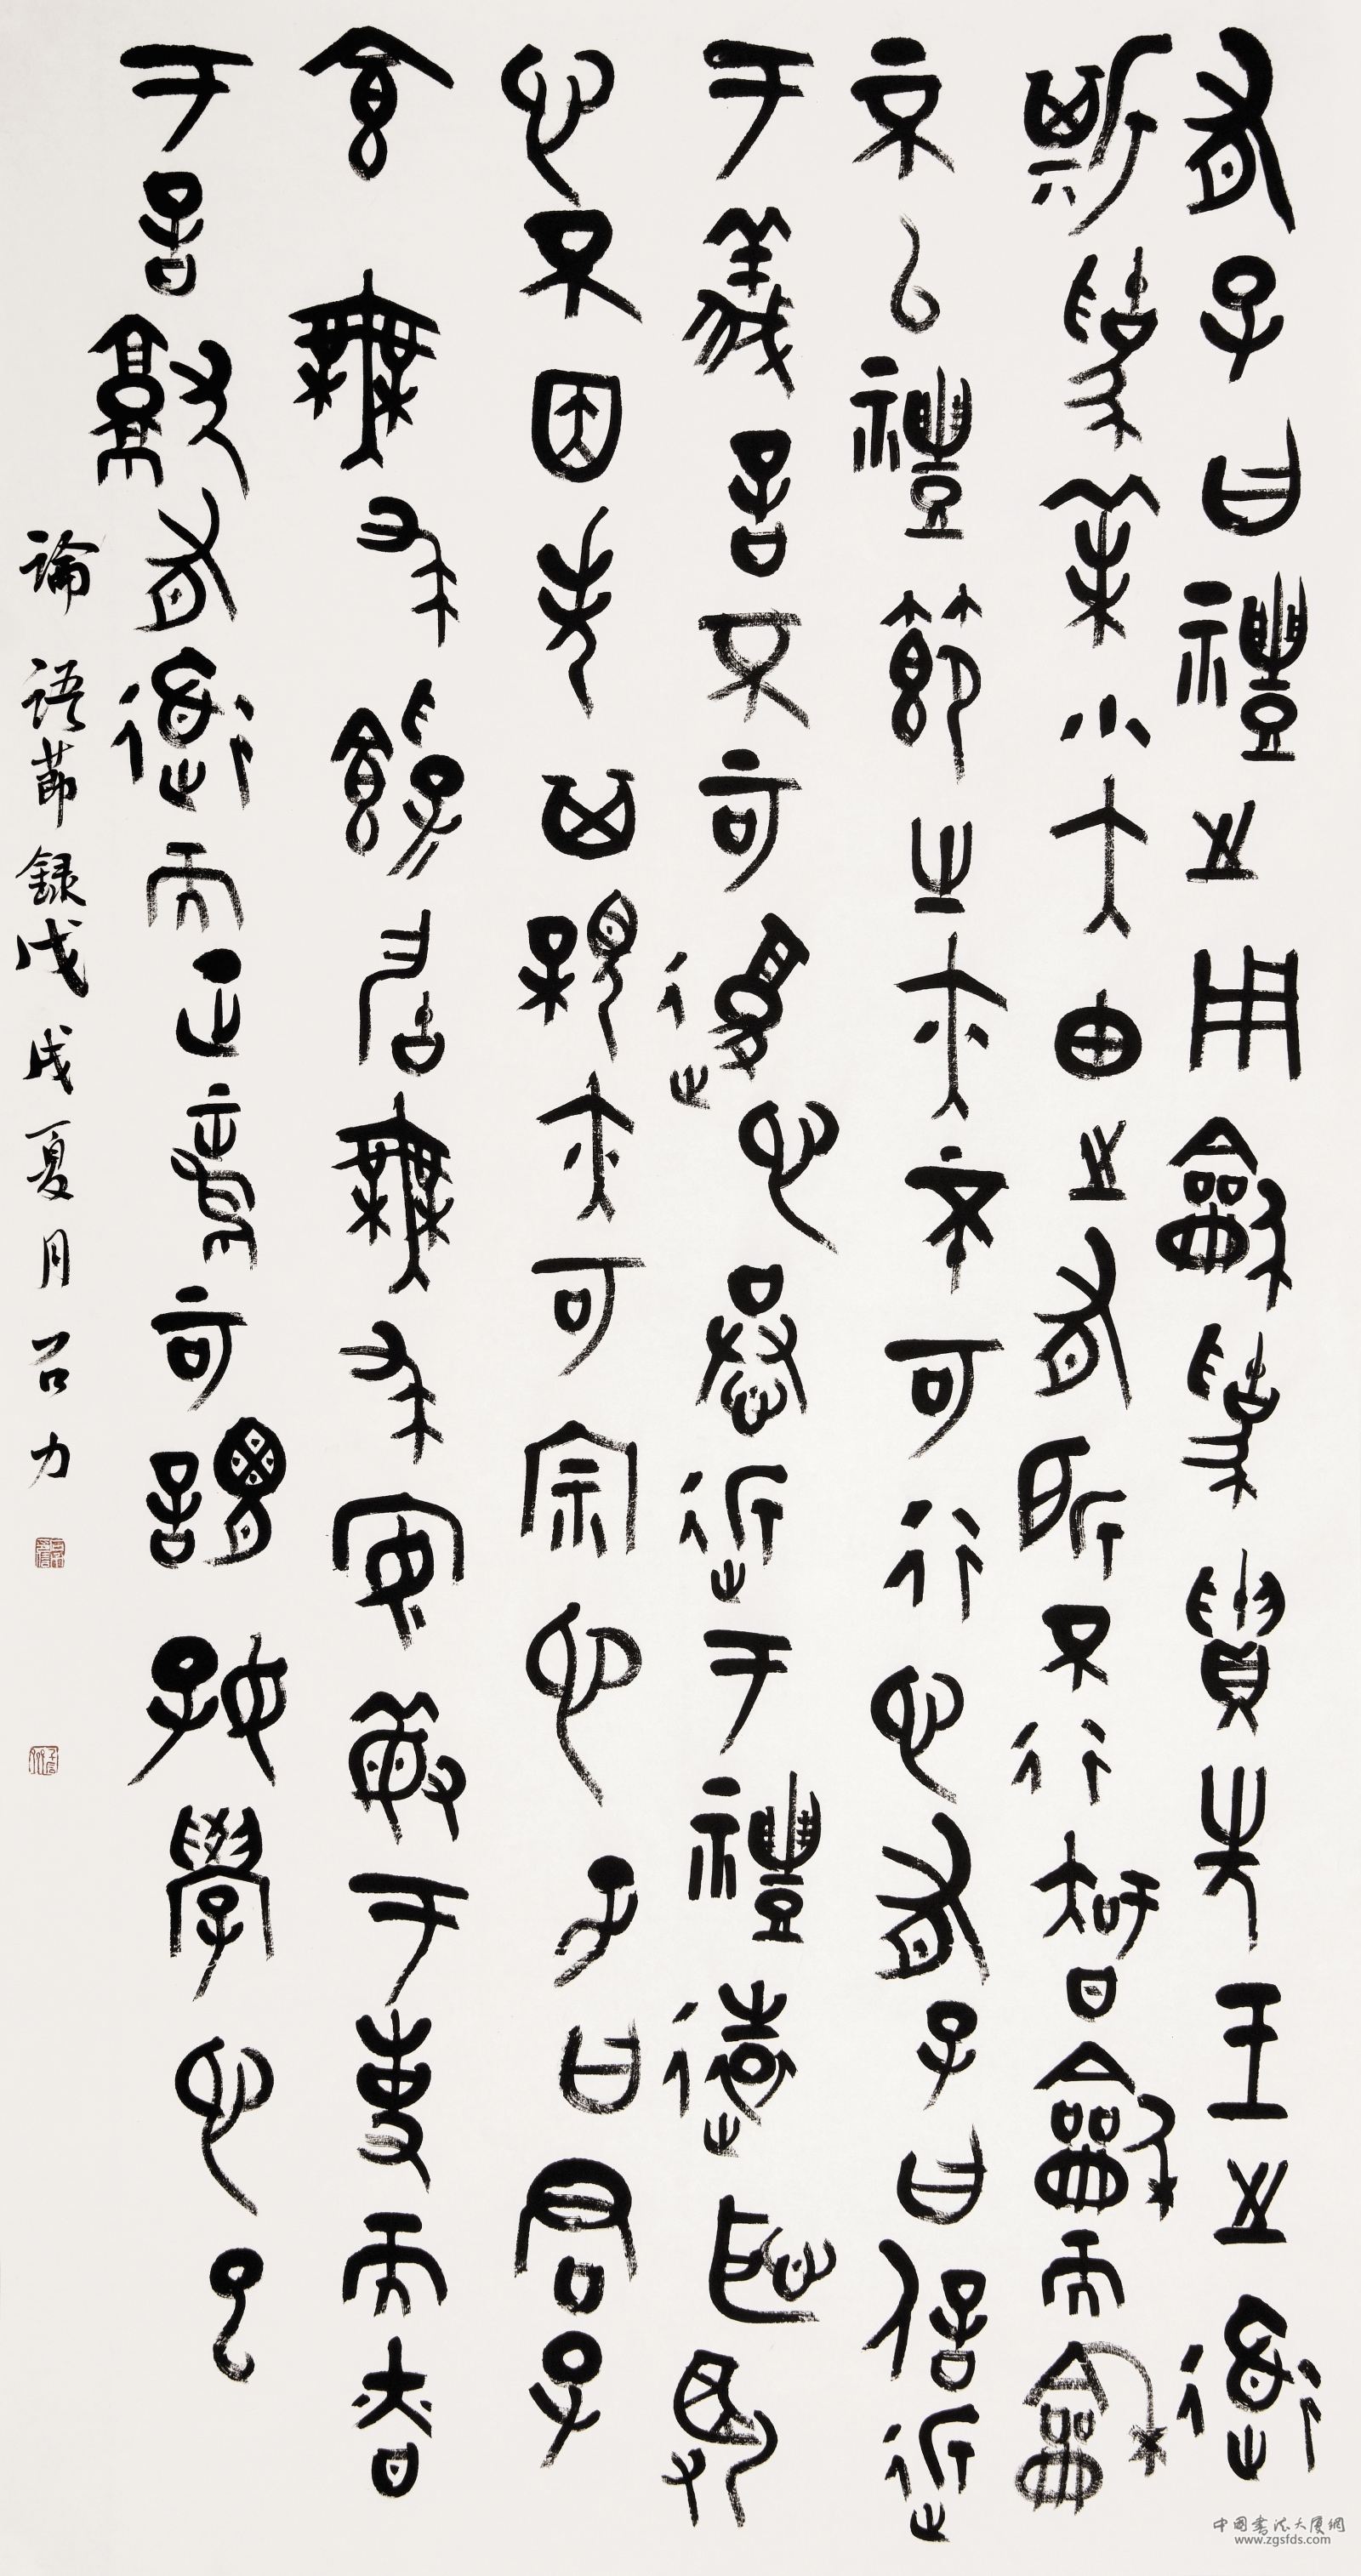 有子曰禮之用龢為貴先王之道
斯為美小大由之有所不行智龢而龢
不以禮節之亦不可行也有子曰信近
于義言不可復也恭近于禮遠恥辱
也不因失其親亦可宗也子曰君子
食無求飽居無求安敏于事而慎
于言就有道而正焉可謂好學也已
論語節錄戊戌夏月力
中國書法大廈網
www.zgsfds.com